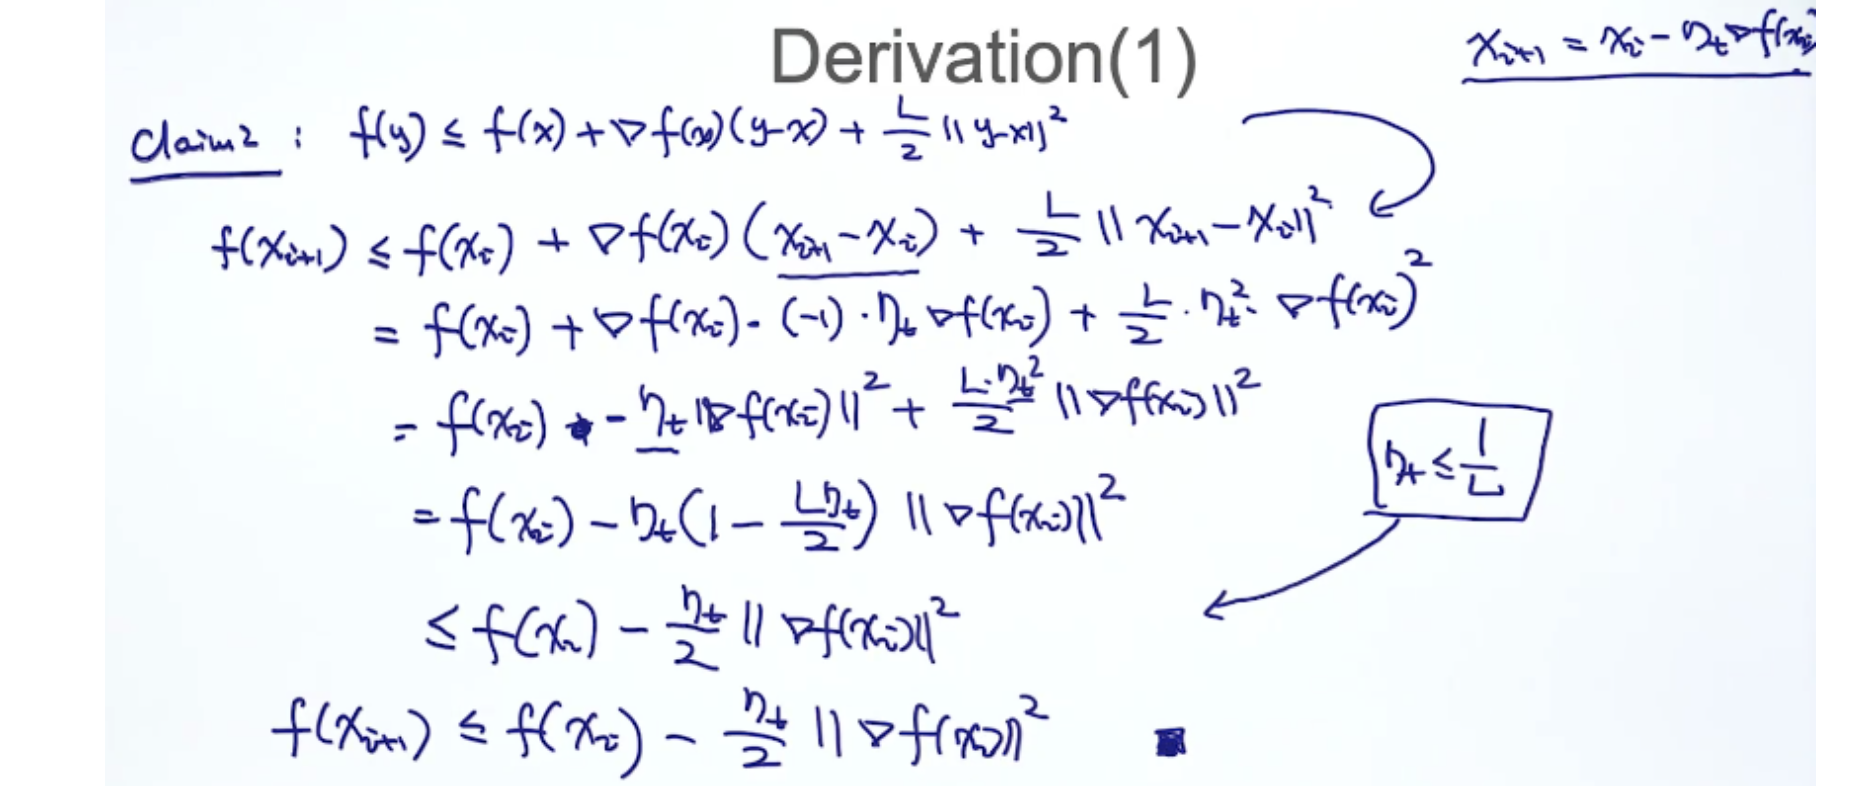 Derivation(1)
x_{i+1} = x_i - η_t ∇f(x_i)
Claim 2 : f(y) ≤ f(x) + ∇f(x)(y-x) + L/2 ||y-x||²
f(x_{i+1}) ≤ f(x_i) + ∇f(x_i)(x_{i+1} - x_i) + L/2 ||x_{i+1} - x_i||²
= f(x_i) + ∇f(x_i) · (-1) · η_t ∇f(x_i) + L/2 · η_t² · ∇f(x_i)²
= f(x_i) - η_t ||∇f(x_i)||² + L·η_t²/2 ||∇f(x_i)||²
= f(x_i) - η_t(1 - Lη_t/2) ||∇f(x_i)||²
η_t ≤ 1/L
≤ f(x_i) - η_t/2 ||∇f(x_i)||²
f(x_{i+1}) ≤ f(x_i) - η_t/2 ||∇f(x_i)||² ■